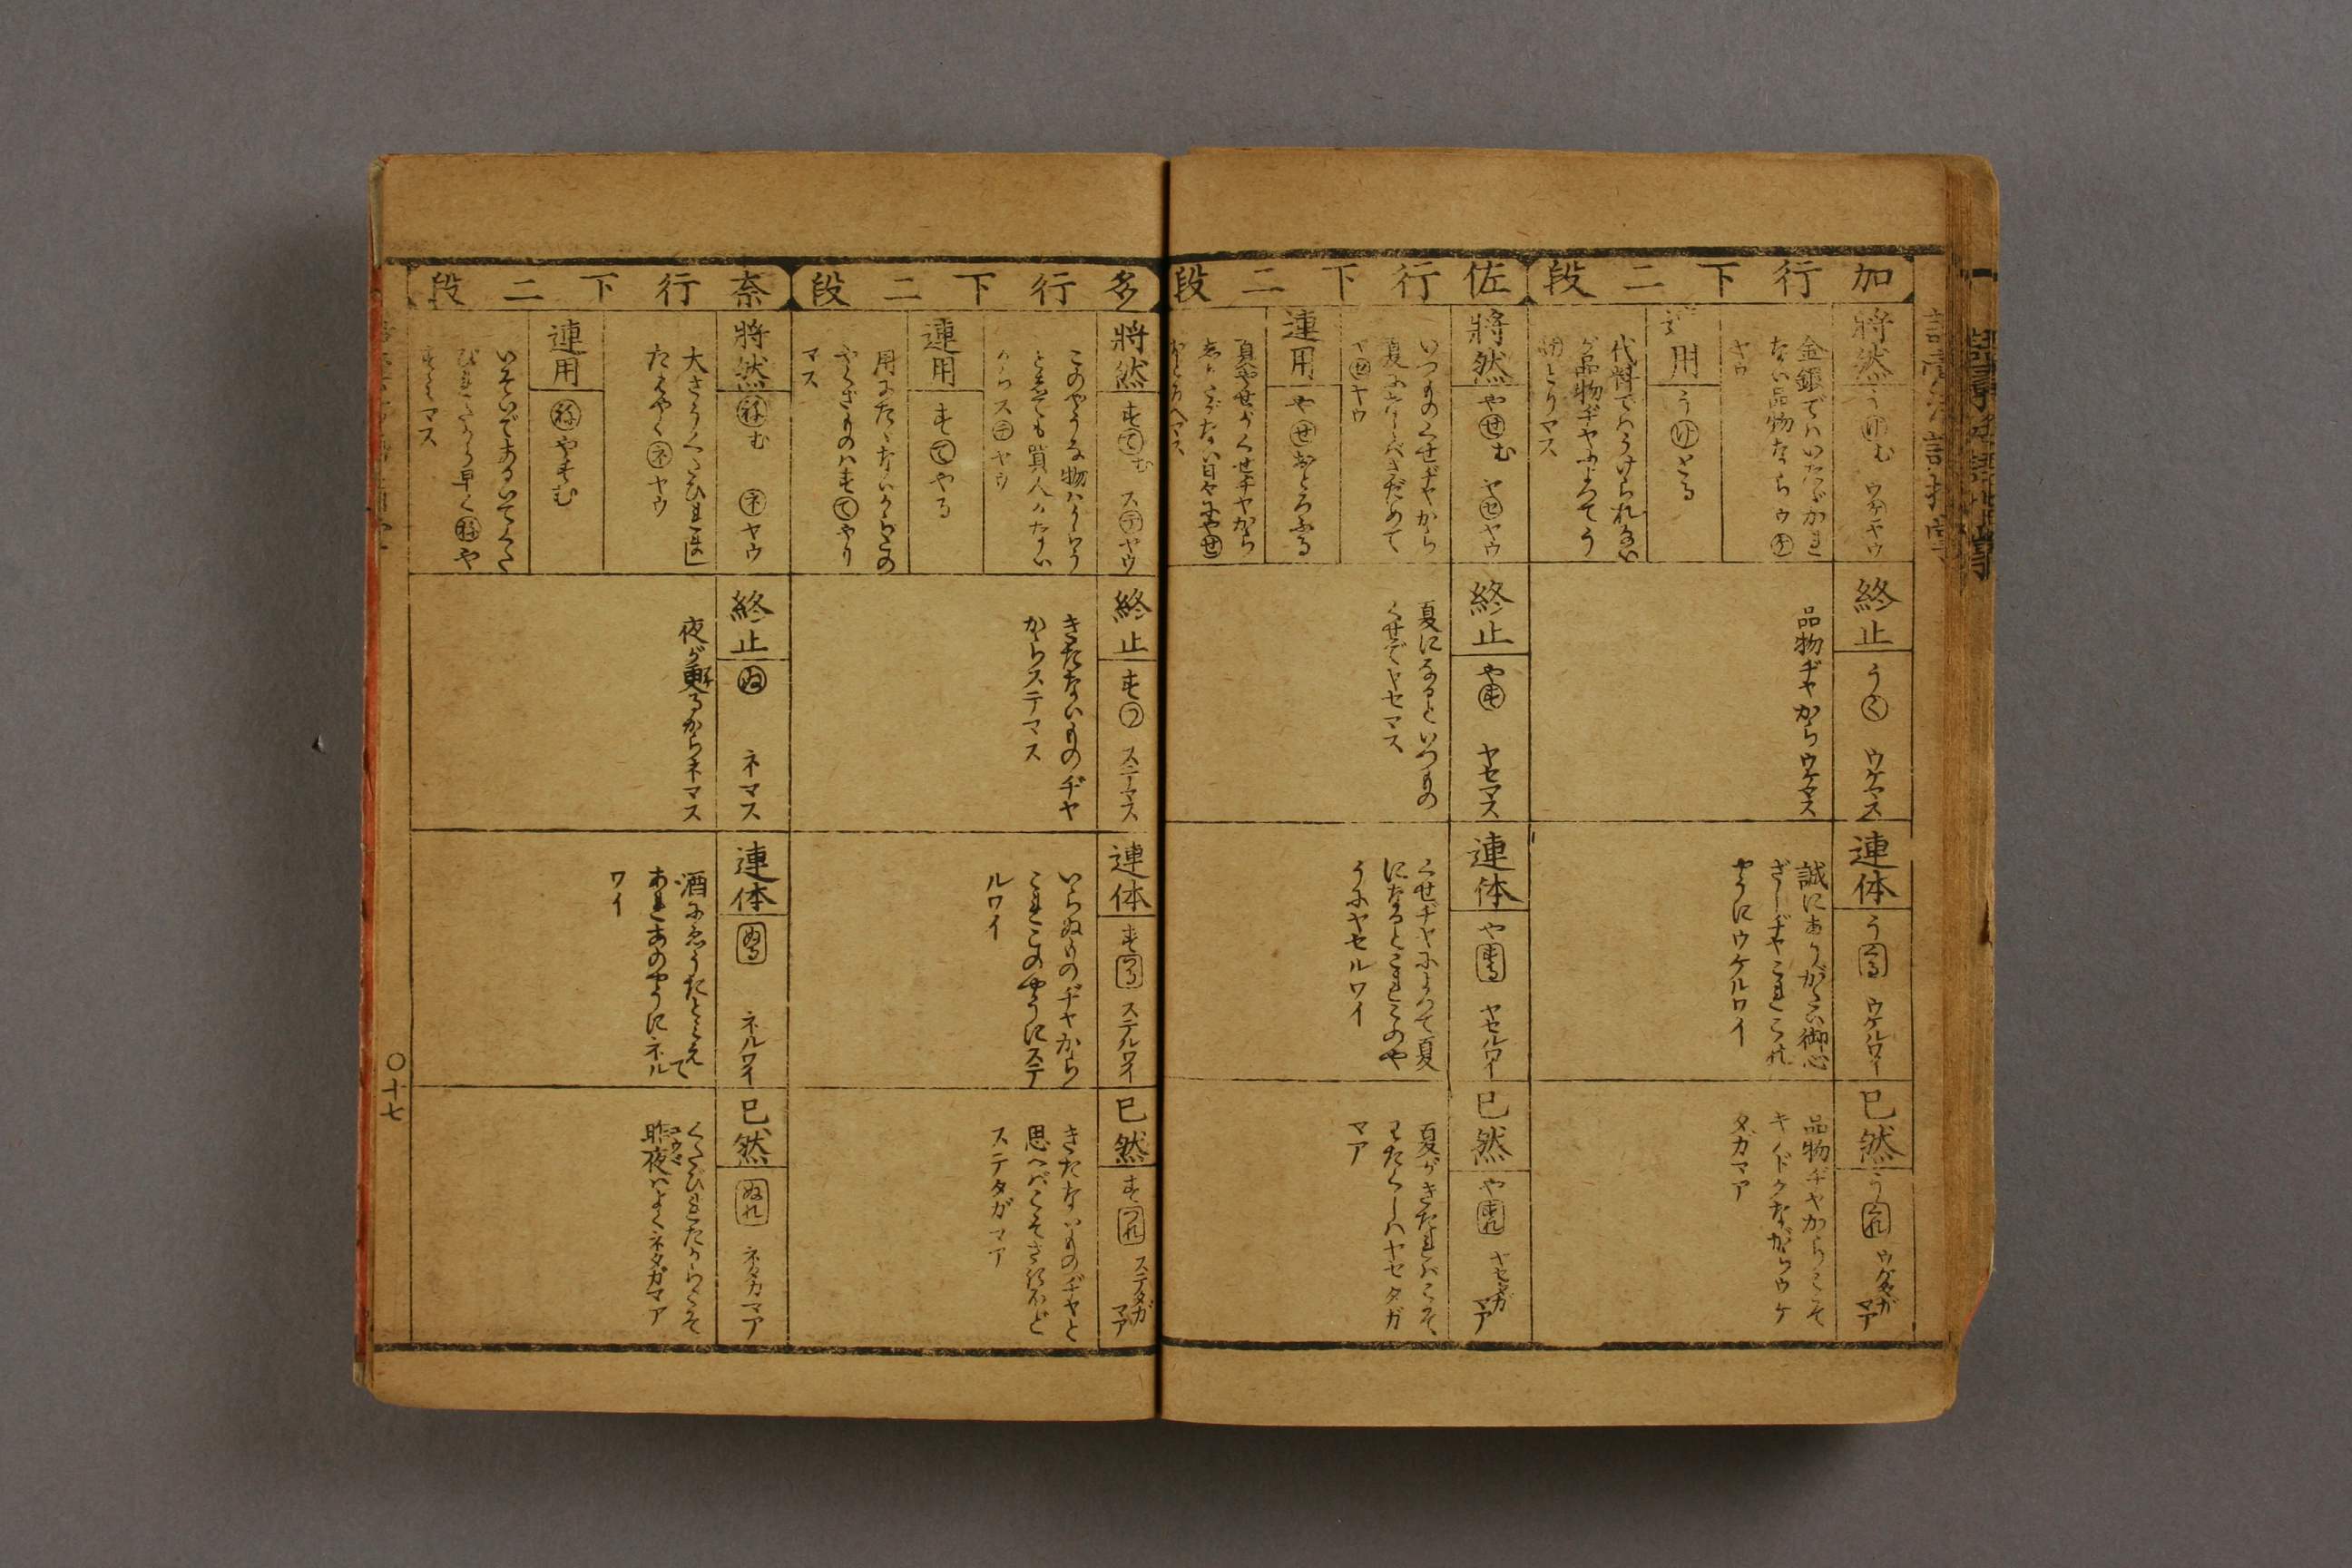 加行下二段
將然
う㋘む ウケヤウ
金銀でハいたゞかれ
ない品物ならウ㋘
ヤウ
用
う㋘とる
代料でハうけられない
が品物ヂヤによつてう
㋘とりマス
終止
うく ウケマス
品物ヂヤからウケマス
連体
うくる ウケルワイ
誠にありがたい御心
ざしヂヤこれこれ
やうにウケルワイ
已然
うくれ ウケタガマア
品物ヂヤからこそ
キノドクながらウケ
タガマア
佐行下二段
將然
やせむ ヤセヤウ
いつものくせヂヤから
夏にならバさだめて
ヤセヤウ
連用
やせおとろふる
夏やせがくせヂヤから
日々にやせ
おとろへマス
終止
やす ヤセマス
夏になるといつもの
くせでヤセマス
連体
やする ヤセルワイ
くせヂヤによつて夏
になるとこれこのや
うにヤセルワイ
已然
やすれ ヤセタガマア
夏がきたれバこそ
わたくしハヤセタガ
マア
多行下二段
將然
すてむ ステヤウ
このやうな物ハうらう
と思ても買人がない
からステヤウ
連用
すてやる
用にたゝないからこの
やくざものハすてやり
マス
終止
すつ ステマス
きたないものヂヤ
からステマス
連体
すつる ステルワイ
いらぬものヂヤから
これこのやうにステ
ルワイ
已然
すつれ ステタガマア
きたないものヂヤと
思へバこそさほど
ステタガマア
奈行下二段
將然
ねむ ネヤウ
大さうくたびれま
たはやくネヤウ
連用
ねやすむ
いそいであるいてくた
びれたから早くねや
すミマス
終止
ぬ ネマス
夜が更るからネマス
連体
ぬる ネルワイ
酒にゑうたとミえて
あれあのやうにネル
ワイ
已然
ぬれ ネタガマア
くたびれたからこそ
昨夜ハよくネタガマア
〇十七